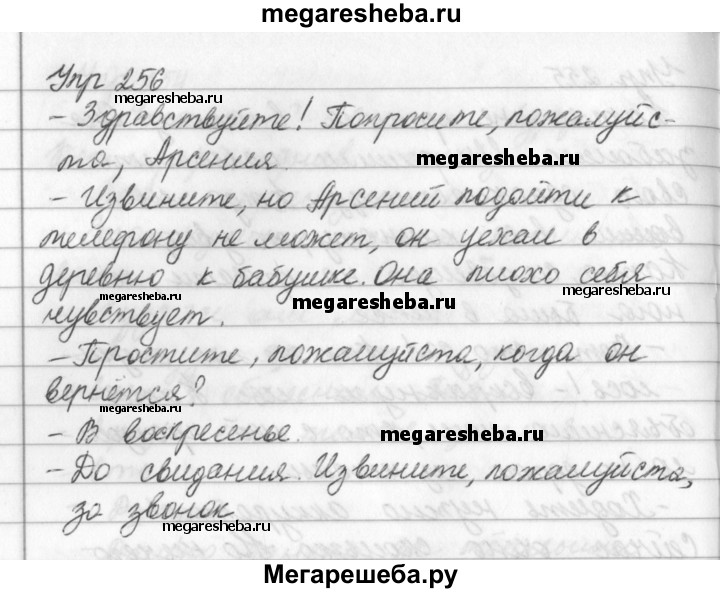 megaresheba.ru
Упр 256
megaresheba.ru
– Здравствуйте! Попросите, пожалуйс-
та, Арсения.
megaresheba.ru
– Извините, но Арсений подойти к
телефону не может, он уехал в
деревню к бабушке. Она плохо себя
megaresheba.ru
megaresheba.ru
megaresheba.ru
чувствует.
– Простите, пожалуйста, когда он
вернётся?
megaresheba.ru
– В воскресенье.
megaresheba.ru
– До свидания. Извините, пожалуйста,
за звонок
megaresheba.ru
Мегарешеба.ру